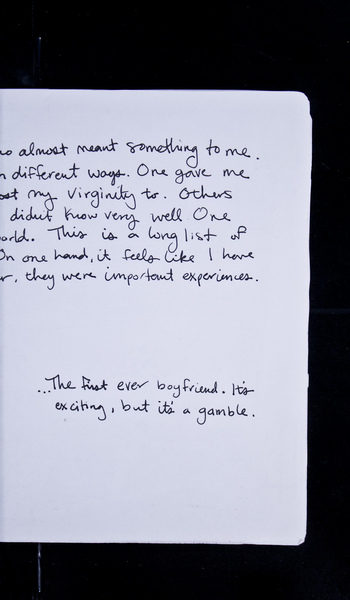 almost meant something to me.
different ways. One gave me
my virginity to. Others
didn't know very well One
This is a long list of
On one hand, it feels like I have
they were important experiences.
...The first ever boyfriend. It's
exciting, but it's a gamble.